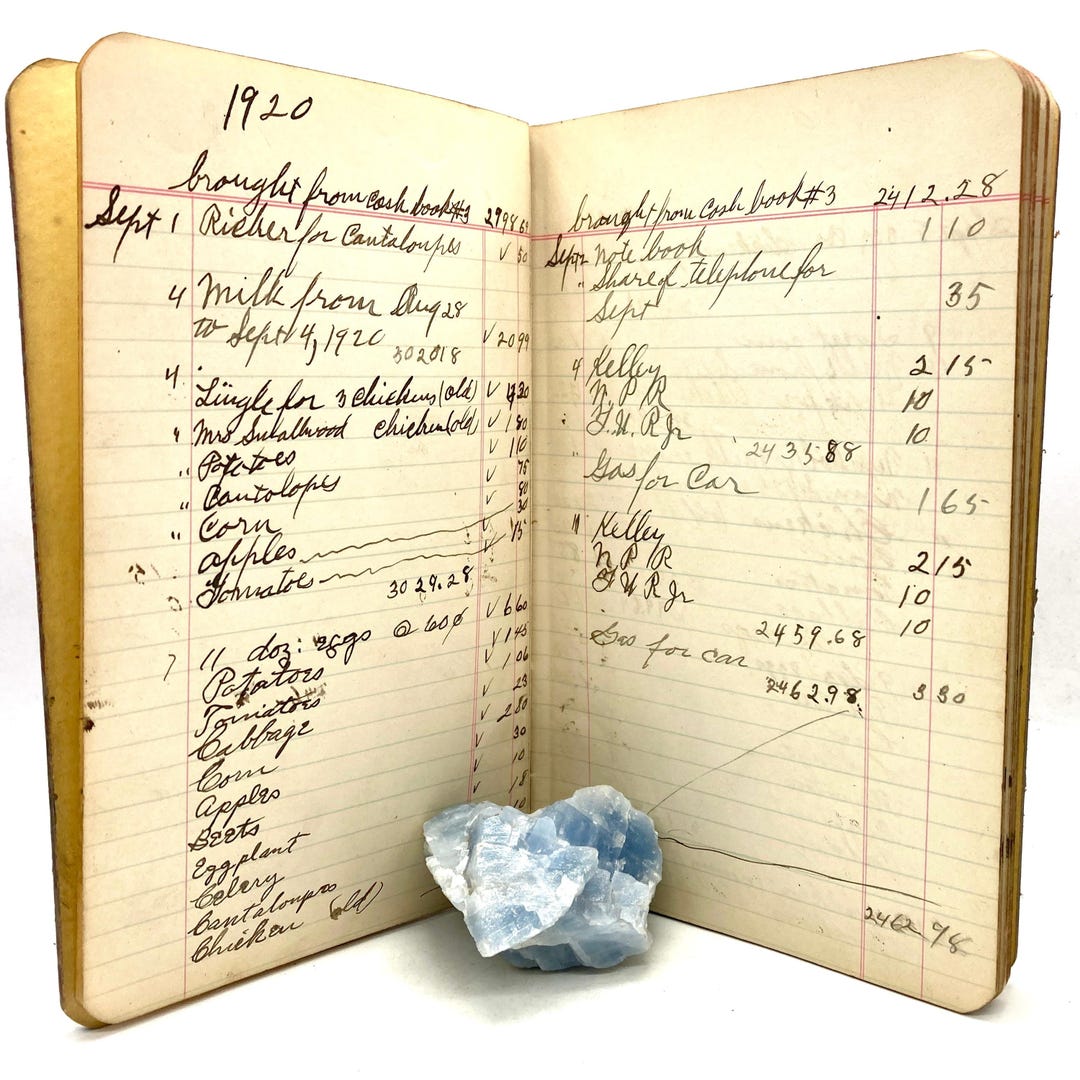 1920
brought from cash book #3 2998 69
Sept 1 Richer for Cantaloupes √ 50
4 Milk from Aug 28
to Sept 4, 1920 √ 20 99
3020 18
4 Lingle for 3 chickens (old) √ 4 30
" Mrs Smallwood chicken (old) √ 1 80
" Potatoes √ 1 10
" Cantolopes √ 75
" Corn √ 80
apples √ 30
Tomatoes √ 15
3029.28
7 11 doz: eggs @ 60¢ √ 6 60
Potatoes √ 1 45
Tomatoes √ 1 06
Cabbage √ 23
Corn √ 2 80
Apples √ 30
Beets √ 10
Eggplant √ 18
Celery 10
Cantaloupes
Chicken old)
brought from cash book #3 2412.28
Sept 2 Note book 1 10
" Share of telephone for
Sept 35
4 Kelley 2 15
N. P. R 10
F. U. R Jr 10
2435 88
" Gas for Car 1 65
11 Kelley 2 15
N P R 10
F U R Jr 10
2459.68
Gas for car 3 30
2462.98
2462 98